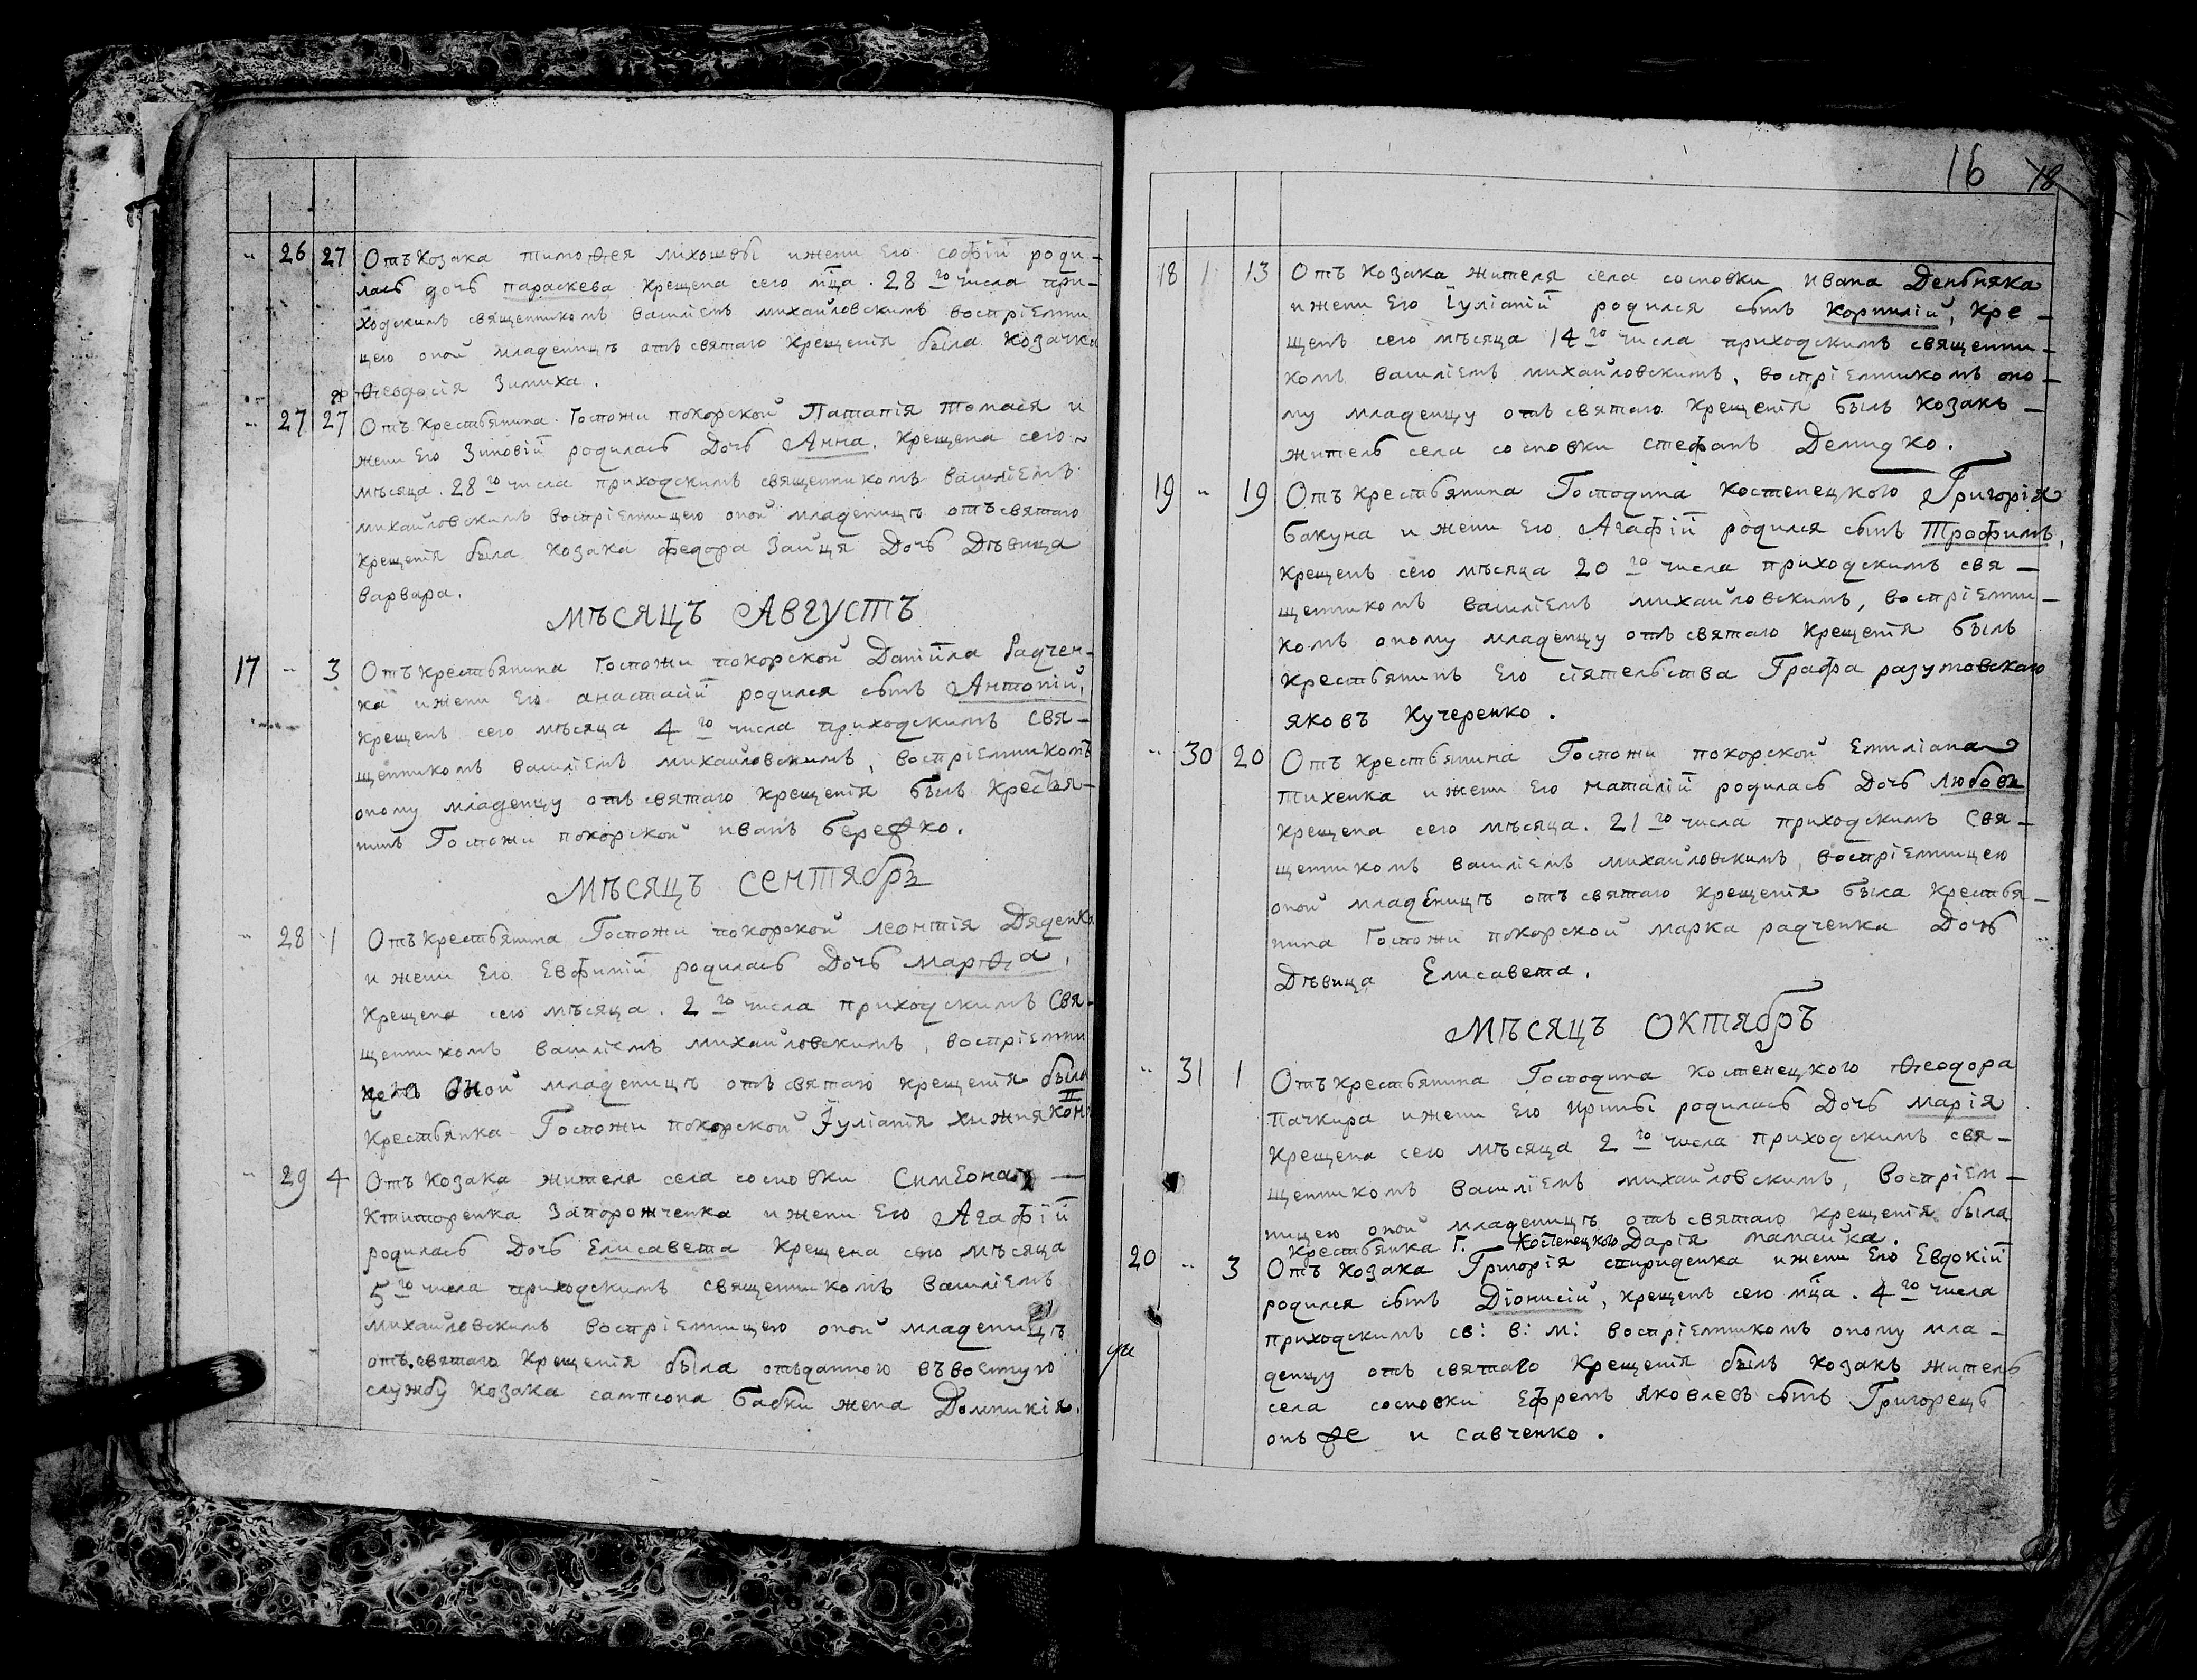 " 26 27 Отъ козака тимоѳея михошвы и жени его софіи роди-
лась дочь параскева крещена сего мца. 28 го числа при-
ходскимъ священникомъ василіемъ михайловскимъ воспріемни
цею оной младеницѣ отъ святаго крещенія была козачка
Ѳеодосія Зимиха.
" 27 27 Отъ крестьянина Госпожи покорской Патапія томася и
жени его Зиновіи родилась Дочь Анна. крещена сего
мѣсяца. 28 го числа приходскимъ священникомъ василіемъ
михайловскимъ воспріемницею оной младеницѣ отъ святаго
крещенія была козака федора Заиця Дочь Дѣвица
варвара.
МѢСЯЦЪ АВГУСТЪ
17 " 3 Отъ крестьянина госпожи покорской Даніила Радчен-
ка и жени его анастасіи родился сынъ Антоній,
крещенъ сего мѣсяца 4 го числа приходскимъ свя-
щенникомъ василіемъ михайловскимъ, воспріемникомъ
оному младенцу отъ святаго крещенія былъ крестья-
нинъ Госпожи покорской иванъ бережко.
МѢСЯЦЪ СЕНТЯБРЪ
" 28 1 Отъ крестьянина Госпожи покорской леонтія Дяденка
и жени его Евфиміи родилась Дочь марѳа,
крещена сего мѣсяца. 2 го числа приходскимъ свя-
щенникомъ василіемъ михайловскимъ, воспріемни
цею оной младеницѣ отъ святаго крещенія была
крестьянка Госпожи покорской Іуліанія хижнякова
" 29 4 Отъ козака жителя села сосновки Симеона —
ктиторенка Запорожченка и жени его Агафіи
родилась Дочь Елисавета крещена сего мѣсяца
5 го числа приходскимъ священникомъ василіемъ
михайловскимъ воспріемницею оной младеницѣ
отъ святаго крещенія была отъданного въ военную
службу козака сампсона бабки жена Домникія.
16 18
18 " 13 Отъ козака жителя села сосновки ивана Деньняка
и жени его Іуліаніи родился сынъ Корнилій, кре-
щенъ сего мѣсяца 14 го числа приходскимъ священни-
комъ василіемъ михайловскимъ, воспріемникомъ оно-
му младенцу отъ святаго крещенія былъ козакъ —
житель села сосновки стефанъ Демидко.
19 " 19 Отъ крестьянина Господина костенецкого Григорія
бакуна и жени его Агафіи родился сынъ Трофимъ,
крещенъ сего мѣсяца 20 го числа приходскимъ свя-
щенникомъ василіемъ михайловскимъ, воспріемни-
комъ оному младенцу отъ святаго крещенія былъ
крестьянинъ его сіятельства Графа разумовскаго
яковъ Кучеренко.
" 30 20 Отъ крестьянина Госпожи покорской Емиліана
тихенка и жени его наталіи родилась Дочь любовь
крещена сего мѣсяца. 21 го числа приходскимъ свя-
щенникомъ василіемъ михайловскимъ, воспріемницею
оной младеницѣ отъ святаго крещенія была крестья-
нина Госпожи покорской марка радченка Дочь
Дѣвица Елисавета.
МѢСЯЦЪ ОКТЯБРЪ
" 31 1 Отъ крестьянина Господина костенецкого Ѳеодора
пачкира и жени его ирины родилась Дочь марія
крещена сего мѣсяца 2 го числа приходскимъ свя-
щенникомъ василіемъ михайловскимъ, воспріем-
ницею оной младеницѣ отъ святаго крещенія была
крестьянка г. костенецкого Дарія мамайка.
20 " 3 Отъ козака Григорія спириденка и жени его Евдокіи
родился сынъ Діонисій, крещенъ сего мца. 4 го числа
приходскимъ св: в: м: воспріемникомъ оному мла-
денцу отъ святаго крещенія былъ козакъ житель
села сосновки Ефремъ яковлевъ сынъ Григорецъ
онъ же и савченко.